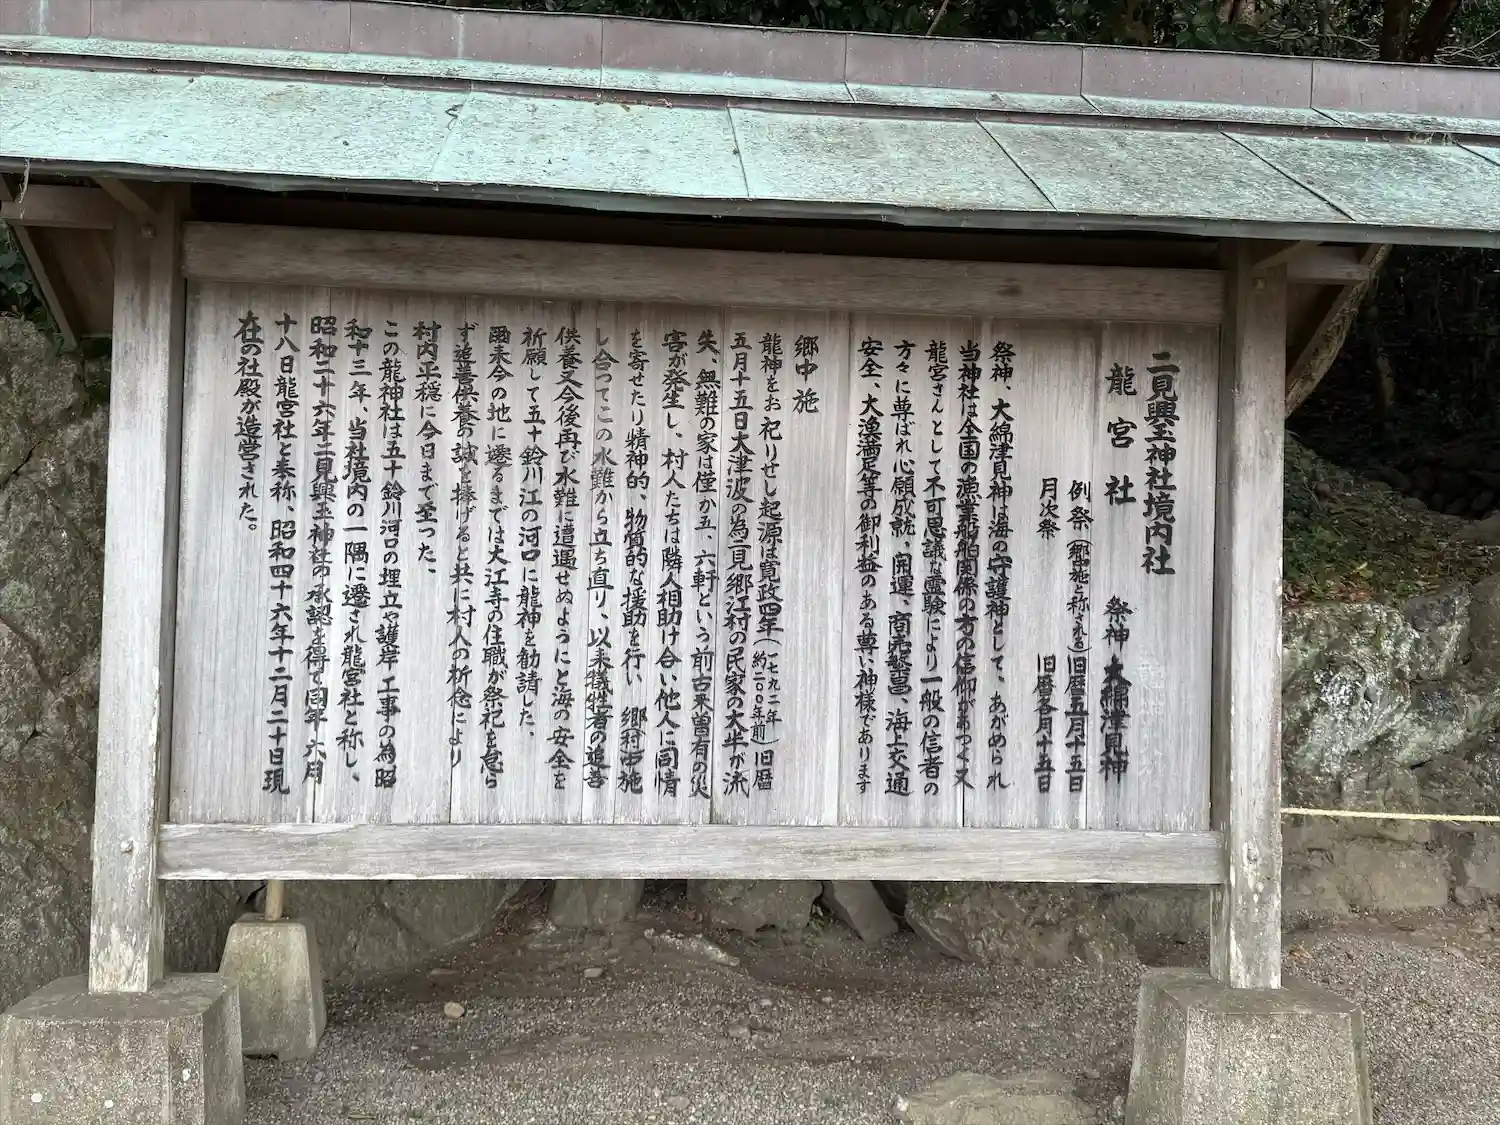 二見興玉神社境内社
龍宮社 祭神 大綿津見神
例祭(郷中施と称される)旧暦五月十五日
月次祭 旧暦各月十五日
祭神、大綿津見神は海の守護神として、あがめられ
当神社は全国の漁業船舶関係の方の信仰があつく又
龍宮さんとして不可思議な霊験により一般の信者の
方々に尊ばれ心願成就、開運、商売繁昌、海上交通
安全、大漁満足等の御利益のある尊い神様であります
郷中施
龍神をお祀りせし起源は寛政四年(一七九二年 約二〇〇年前)旧暦
五月十五日大津波の為二見郷江村の民家の大半が流
失、無難の家は僅か五、六軒という前古未曽有の災
害が発生し、村人たちは隣人相助け合い他人に同情
を寄せたり精神的、物質的な援助を行い、郷村中施
し合ってこの水難から立ち直り、以来犠牲者の追善
供養又今後再び水難に遭遇せぬようにと海の安全を
祈願して五十鈴川江の河口に龍神を勧請した、
爾来今の地に遷るまでは大江寺の住職が祭祀を怠ら
ず追善供養の誠を捧げると共に村人の祈念により
村内平穏に今日まで至った、
この龍神社は五十鈴川河口の埋立や護岸工事の為昭
和十三年、当社境内の一隅に遷され龍宮社と称し、
昭和二十六年二見興玉神社の承認を得て同年六月
十八日龍宮社と奉称、昭和四十六年十二月二十日現
在の社殿が造営された。